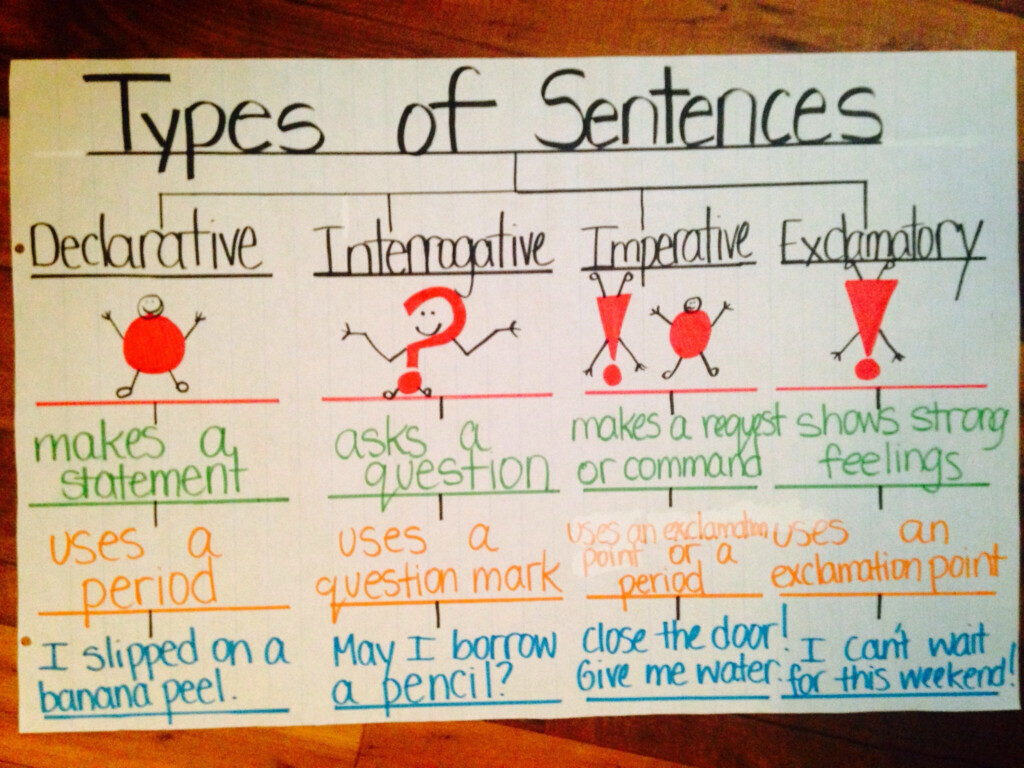 Types of Sentences
Declarative
makes a
statement
uses a
period
I slipped on a
banana peel.
Interrogative
?
asks a
question
uses a
question mark
May I borrow
a pencil?
Imperative
!
makes a request
or command
uses an exclamation
point or a
period
Close the door!
Give me water.
Exclamatory
!
shows strong
feelings
uses an
exclamation point
I can't wait
for this weekend!